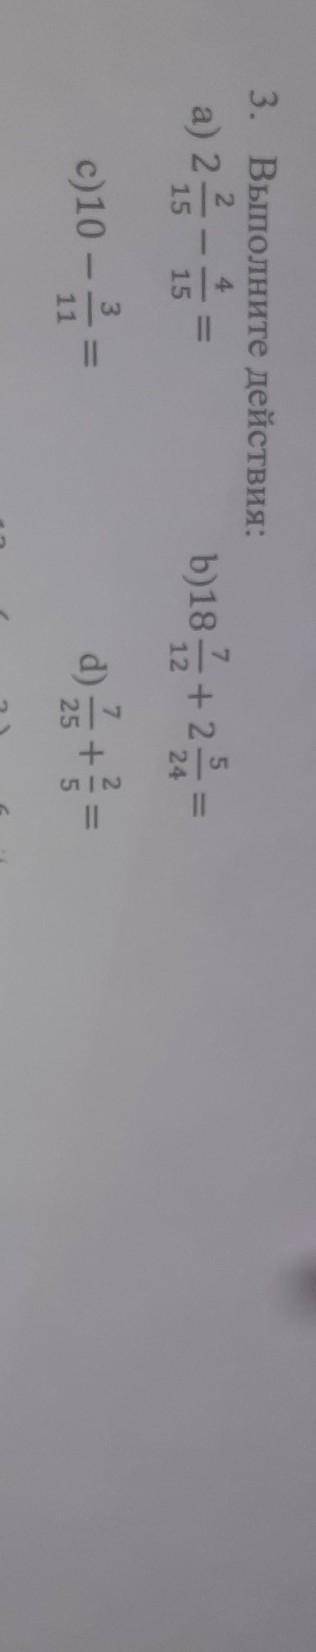 3. Выполните действия:
a) 2 2/15 − 4/15 = b)18 7/12 + 2 5/24 =
c)10 − 3/11 = d) 7/25 + 2/5 =